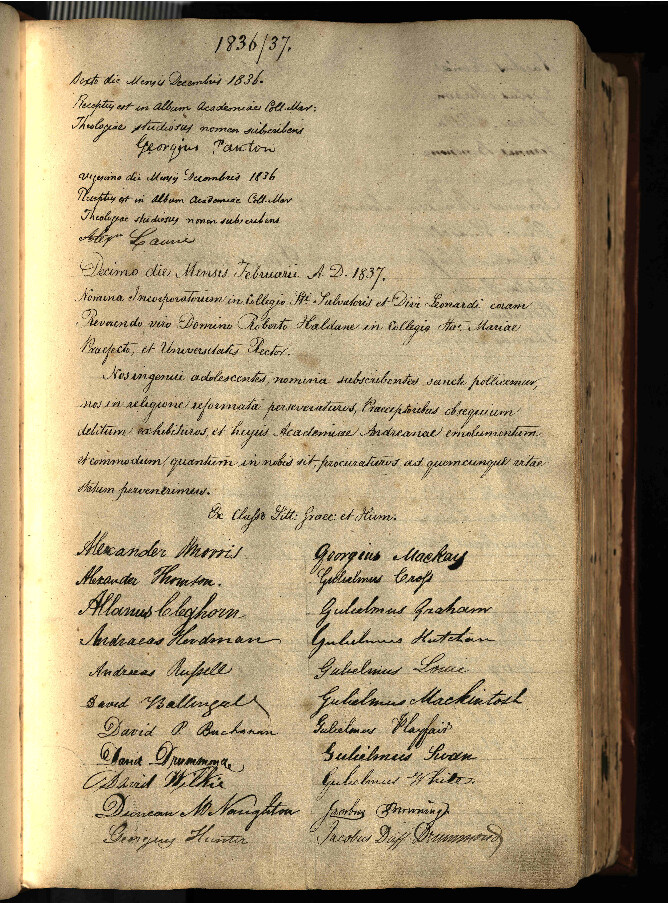 1836/37.
Sexto die Mensis Decembris 1836.
Receptus est in Album Academiae Coll. Mar:
Theologiae studiosus nomen subscribens
Georgius Paxton
vigesimo die Mensis Decembris 1836
Receptus est in Album Academiae Coll. Mar
Theologiae studiosus nomen subscribens
Alexr Laurie
Decimo die Mensis Februarii A.D. 1837.
Nomina Incorporatorum in Collegio Sti. Salvatoris et Divi Leonardi coram
Reverendo viro Domino Roberto Haldane in Collegio Stae. Mariae
Praefecto, et Universitatis Rector.
Nos ingenui adolescentes, nomina subscribentes sancte pollicemur,
nos in religione reformata perseveraturos, Praeceptoribus obsequium
debitum exhibituros, et hujus Academiae Andreanae emolumentum
et commodum, quantum in nobis sit, procuraturos, ad quemcunque vitae
statum pervenerimus.
Ex Classe Litt: Graec: et Hum.
Alexander Morris
Alexander Thomson.
Allanus Cleghorn
Andraeas Herdman
Andreas Russell
David Ballingal
David P. Buchanan
David Drummond
David Wilkie
Duncan McNaughton
Georgius Hunter
Georgius Mackay
Gulielmus Cross
Gulielmus Graham
Gulielmus Hutchan
Gulielmus
Gulielmus Mackintosh
Gulielmus Playfair
Gulielmus Swan
Gulielmus White
Jacobus Browning
Jacobus Duff Drummond